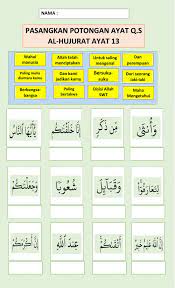 NAMA :
PASANGKAN POTONGAN AYAT Q.S
AL-HUJURAT AYAT 13
Wahai manusia
Allah telah menciptakan
Untuk saling mengenal
Dan perempuan
Paling mulia diantara kamu
Dan kami jadikan kamu
Bersuku-suku
Dari seorang laki-laki
Berbangsa-bangsa
Paling bertakwa
Disisi Allah SWT
Maha Mengetahui
يَٰٓأَيُّهَا النَّاسُ
إِنَّا خَلَقْنَٰكُمْ
مِّن ذَكَرٍ
وَأُنثَىٰ
وَجَعَلْنَٰكُمْ
شُعُوبًا
وَقَبَآئِلَ
لِتَعَارَفُوٓا۟
إِنَّ أَكْرَمَكُمْ
عِندَ اللَّهِ
أَتْقَىٰكُمْ
إِنَّ اللَّهَ عَلِيمٌ خَبِيرٌ